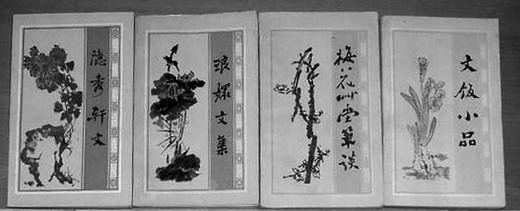 隐秀轩文
琅嬛文集
梅花草堂笔谈
文饭小品